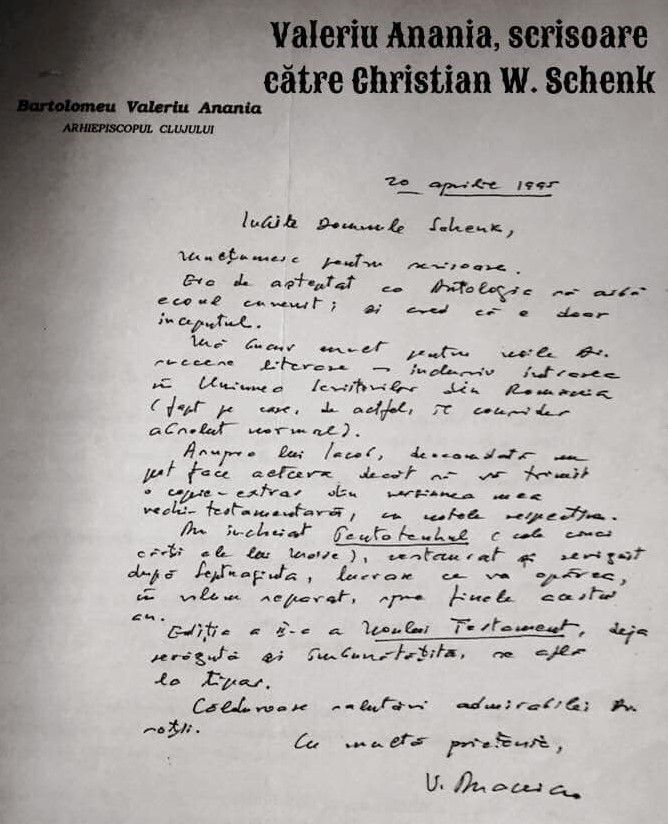 Valeriu Anania, scrisoare
către Christian W. Schenk
Bartolomeu Valeriu Anania
ARHIEPISCOPUL CLUJULUI
20 aprilie 1995
Iubite Domnule Schenk,
Mulțumesc pentru scrisoare.
Era de așteptat ca Antologia să aibă
ecoul cuvenit; și cred că e doar
începutul.
Mă bucur mult pentru noile Dv.
succese literare – inclusiv intrarea
în Uniunea Scriitorilor din România
(fapt pe care, de altfel, îl consider
absolut normal).
Asupra lui Iacob, deocamdată nu
pot face altceva decât să vă trimit
o copie-extras din versiunea mea
vechi-testamentară, cu notele respective.
Am încheiat Pentateuhul (cele cinci
cărți ale lui Moise), restaurat și revizuit
după Septuaginta, lucrare ce va apărea,
în volum separat, spre finele acestui
an.
Ediția a II-a a Noului Testament, deja
revăzută și îmbunătățită, se află
la tipar.
Călduroase salutări admirabilei Dv.
soții.
Cu multă prietenie,
V. Anania